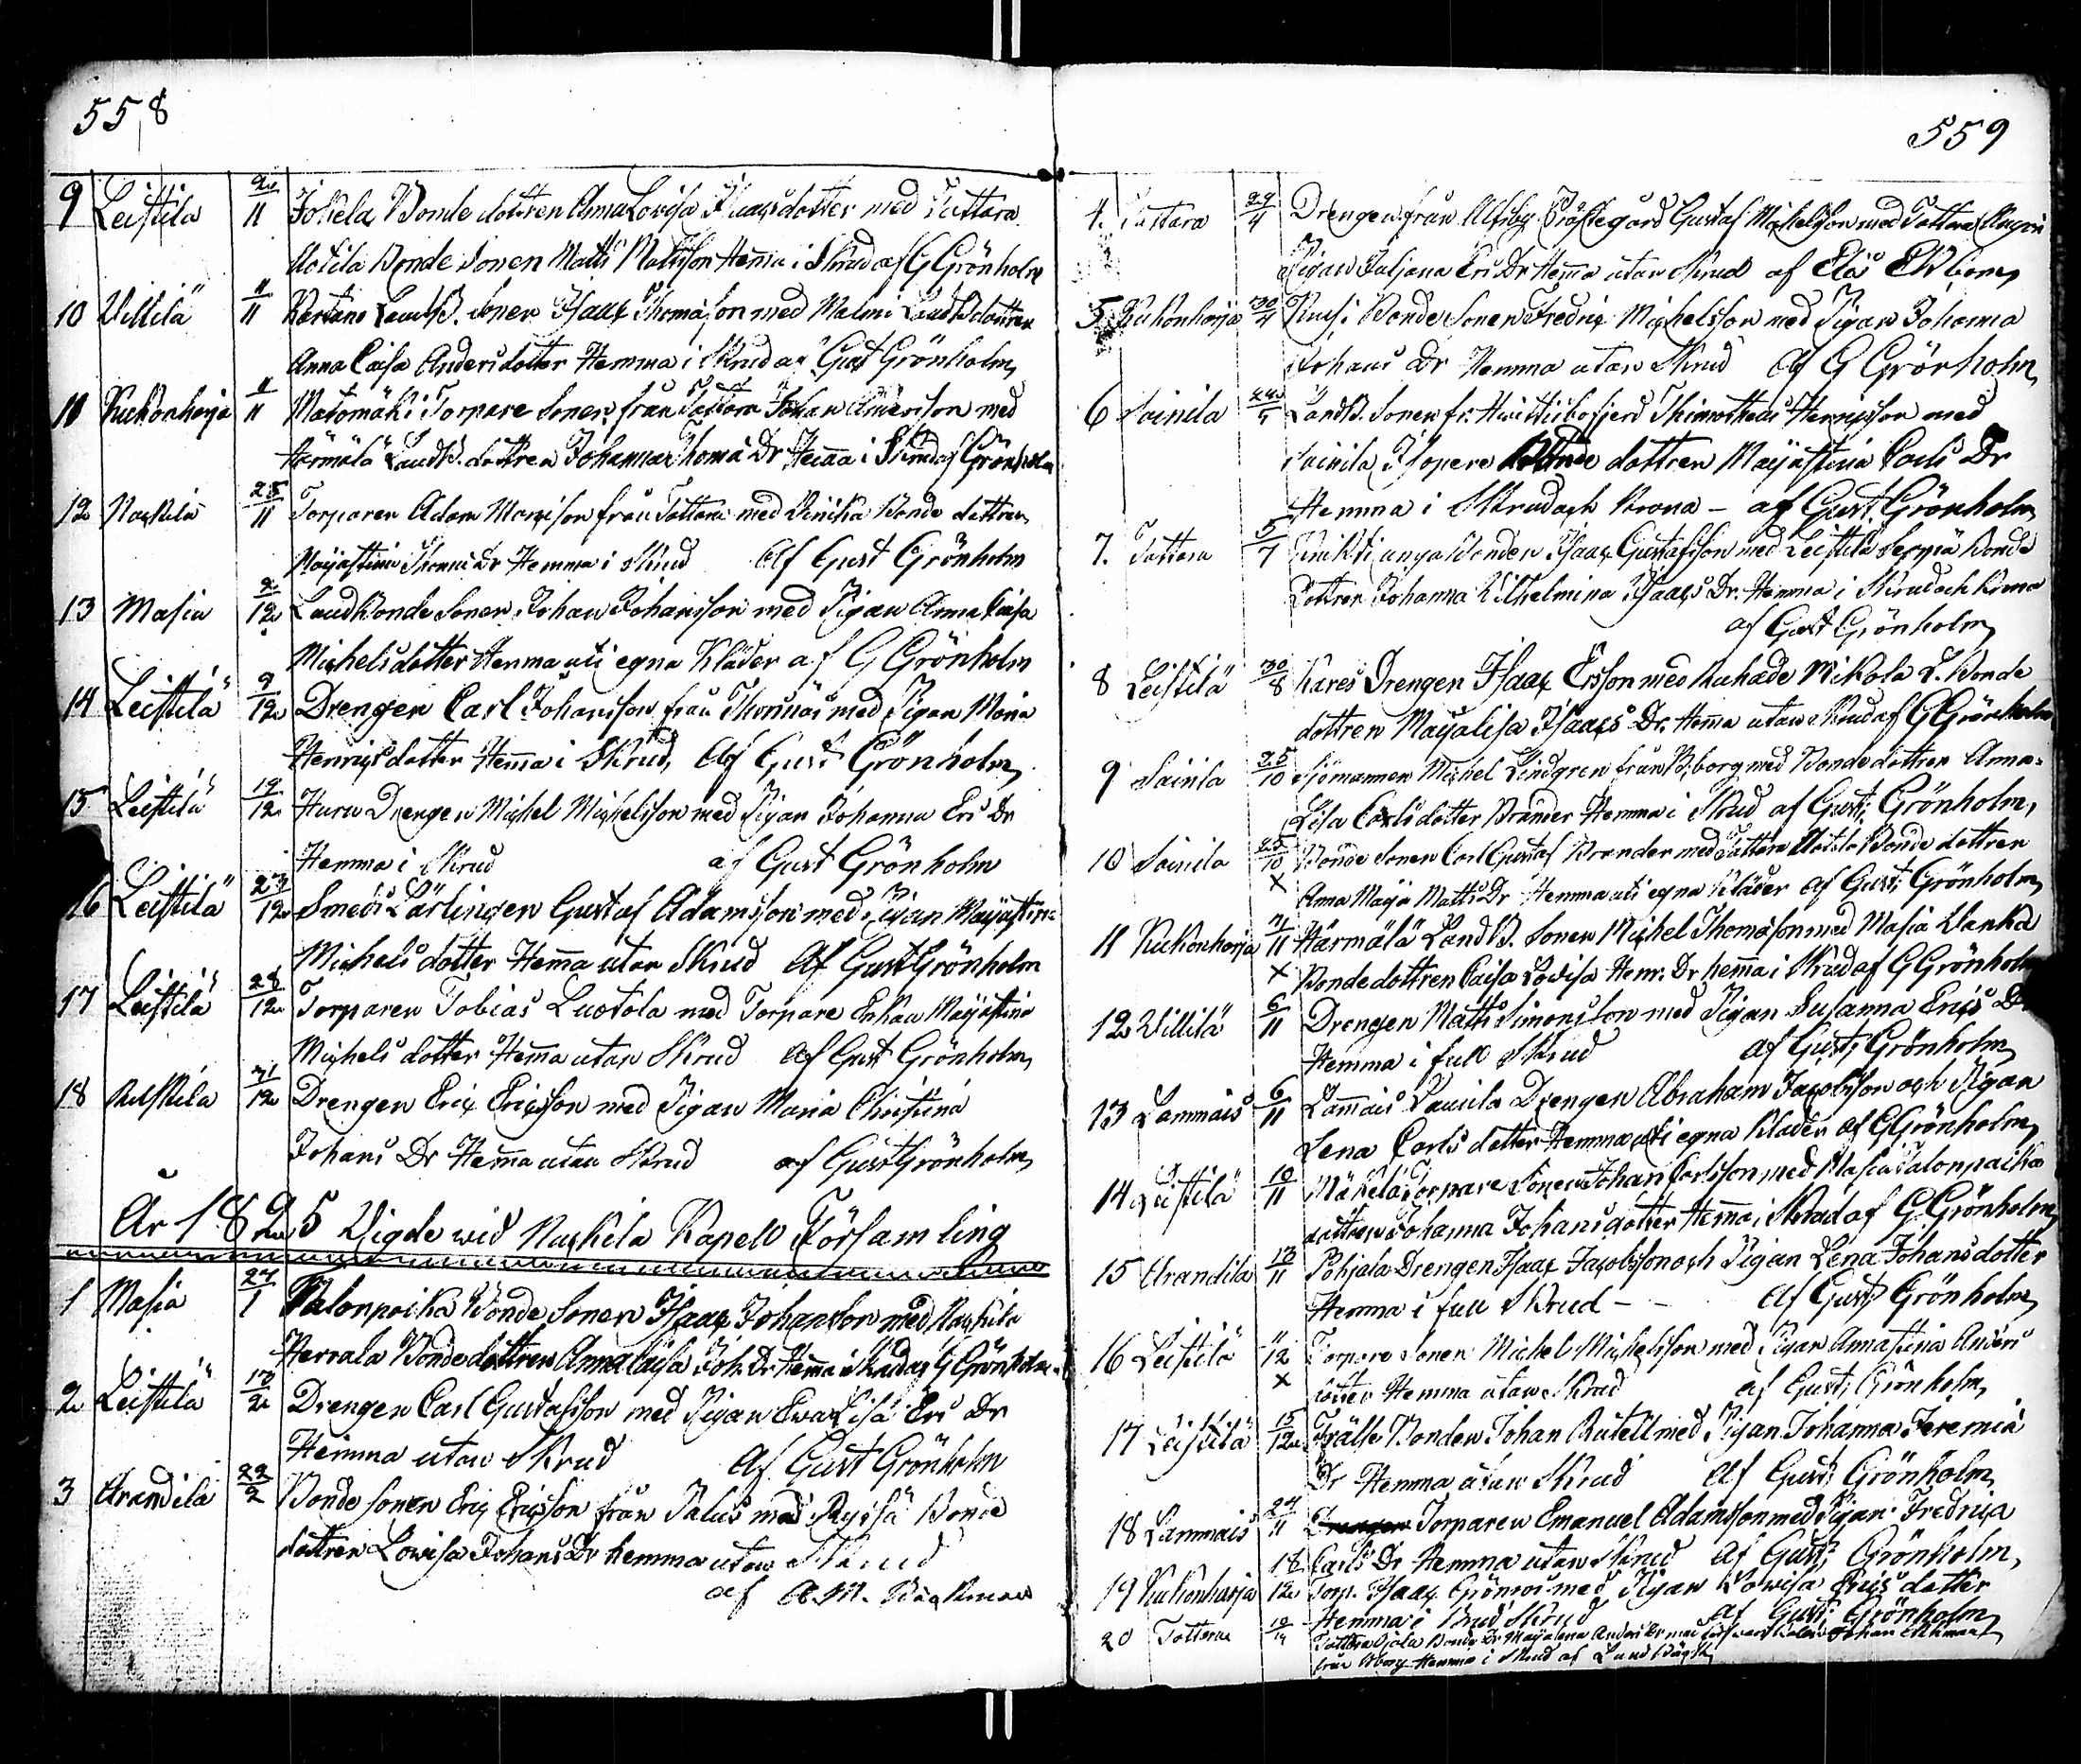 558
9 Leistilä 20/11 Jokela Bonde dottren Anna Lovisa Isaacsdotter med Tattara
Uotila Bonde Sonen Matts Mattsson Hemma i Skrud af G Grönholm
10 Villilä 11/11 Landb. Sonen Isaac Thomasson med Malmi Landb dottren
Anna Caisa Andersdotter Hemma i Skrud af Gust Grönholm
11 Kukonharja 11/11 Matomäki Torpare Sonen från Tattara Johan Andersson med
Härmälä Landb. dottren Johanna Thomas Dr Hema i Skrud af Grönholm
12 Naskila 25/11 Torparen Adam from Tattara med Bonde dottren
Majastina Thomas Dr Hemma i Skrud Af Gust Grönholm
13 Masia 2/12 Landbonde Sonen Johan Johansson med Pigan Anna Caisa
Michelsdotter Hemma uti egna Kläder af G Grönholm
14 Leistilä 9/12 Drengen Carl Johansson från Thornäs med Pigan Maria
Henricsdotter Hemma i Skrud, Af Gust Grönholm
15 Leistilä 19/12 Drengen Michel Michelsson med Pigan Johanna Ers Dr
Hemma i Skrud af Gust Grönholm
16 Leistilä 27/12 Smeds Lärlingen Gustaf Adamsson med Pigan Majastina
Michelsdotter Hema utan Skrud Af Gust Grönholm
17 Leistilä 28/12 Torparen Tobias Luotola med Torpare Enkan Majastina
Michels dotter Hema utan Skrud Af Gust Grönholm
18 31/12 Drengen Eric Ericsson med Pigan Maria Christina
Johans Dr Hema utan Skrud af Gust Grönholm
År 1825 Vigde wid Nackila Kapell Församling
1 Masia 27/1 Palonpoika Bonde Sonen Isaac Johansson med Nackila
Herrala Bonde dottren Anna Caisa Joh. Dr Hema i Skrud af G Grönholm
2 Leistilä 13/2 Drengen Carl Gustafsson med Pigan Eva Lisa Ers Dr
Hemma utan Skrud Af Gust Grönholm
3 Arandila 22/2 Bonde sonen Eric Ericsson från med Ryssä Bonde
dottren Lowisa Johans Dr hemma utan Skrud
af A.M. Bäckman
559
4. Tattara 24/4 Drengen från Prästegård Gustaf Michelsson med Tattara
Pigan Juliana Ers Dr Hema utan Skrud af Elis Ekbom
5 Kukonharja 30/4 Bonde Sonen Fredric Michelsson med Pigan Johanna
Johans Dr Hemma utan Skrud af G Grönholm
6 Soinila Landb. Sonen fr. Huittisbofjerd Thimotheus Henricsson med
Soinila Isopere dottren Majastina Carls Dr
Hemma i Skrud och Krona - af Gust. Grönholm
7. Tattara 5/7 Bonden Isaac Gustafsson med Leistilä Seppä Bonde
Dottren Johanna Vilhelmina Isaacs Dr. Hemma i Skrud och Krona
af Gust Grönholm
8 Leistilä 30/8 Kares Drengen Isaac Ersson med Mikola L. Bonde
dottren Majalisa Isaacs Dr. Hema utan Skrud af G Grönholm
9 Soinila 25/10 Sjömannen Michel Lindgren från B:borg med Bonde dottren Anna-
Lisa Carlsdotter Brander Hemma i Skrud af Gust. Grönholm,
10 Soinila 25/10 Bonde Sonen Carl Gustaf Brander med Tattara Uotila Bonde dottren
x Anna Maja Matts Dr Hemma uti egna Kläder af Gust. Grönholm
11 Kukonharja Härmälä Landb. Sonen Michel Thomasson med Masia Vanka
x Bonde dottren Caisa Lovisa Henr. Dr hema i Skrud af G Grönholm
12 Villilä 6/11 Drengen Matts Simonsson med Pigan Susanna Erics D
Hemma i full Skrud af Gust. Grönholm
13 Lammais 6/11 Lamais Drengen Abraham Jacobsson och Pigan
Lena Carls dotter Hemma uti egna Kläder af G Grönholm
14 Leistilä 10/11 Mäkelä Torpare Sonen Johan Carlsson med Masia Palonpoika
dottren Johanna Johansdotter Hema i Skrud af G. Grönholm
15 Arandila 13/11 Pohjala Drengen Isaac Jacobsson och Pigan Lena Johansdotter
Hemma i full Skrud - - Af Gust Grönholm
16 Leistilä 11/12 Torpare Sonen Michel Michelsson med Pigan Annastina Anders
x dotter Hemma utan Skrud af Gust. Grönholm
17 Leistilä 15/12 Frälse Bonden Johan Rutell med Pigan Johanna Jeremia
Dr Hemma utan Skrud Af Gust. Grönholm
18 Lammais 24/11 Drengen Torparen Emanuel Adamsson med Pigan Fredrica
Carls Dr Hemma utan Skrud Af Gust. Grönholm,
19 Kukonharja 18/12 Torp. Isaac Grönroos med Pigan Lowisa Erics dotter
Hemma i Skrud af Gust. Grönholm
20 Tattara Tattara Ojala Bonde Dr Majalena Anders Dr med Johan Ekman
från Hemma i Skrud af